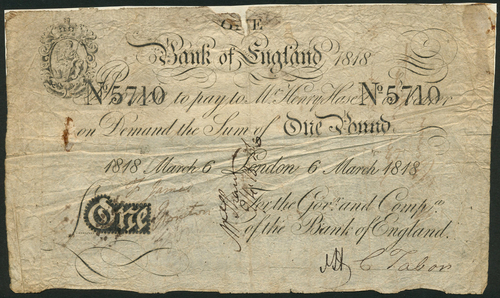 ONE
Bank of England 1818
No 5710 to pay to Mr. Henry Hase No 5710
on Demand the Sum of One Pound
1818 March 6 London 6 March 1818
James
For the Govr. and Compa.
One
of the Bank of England.
C Tabor